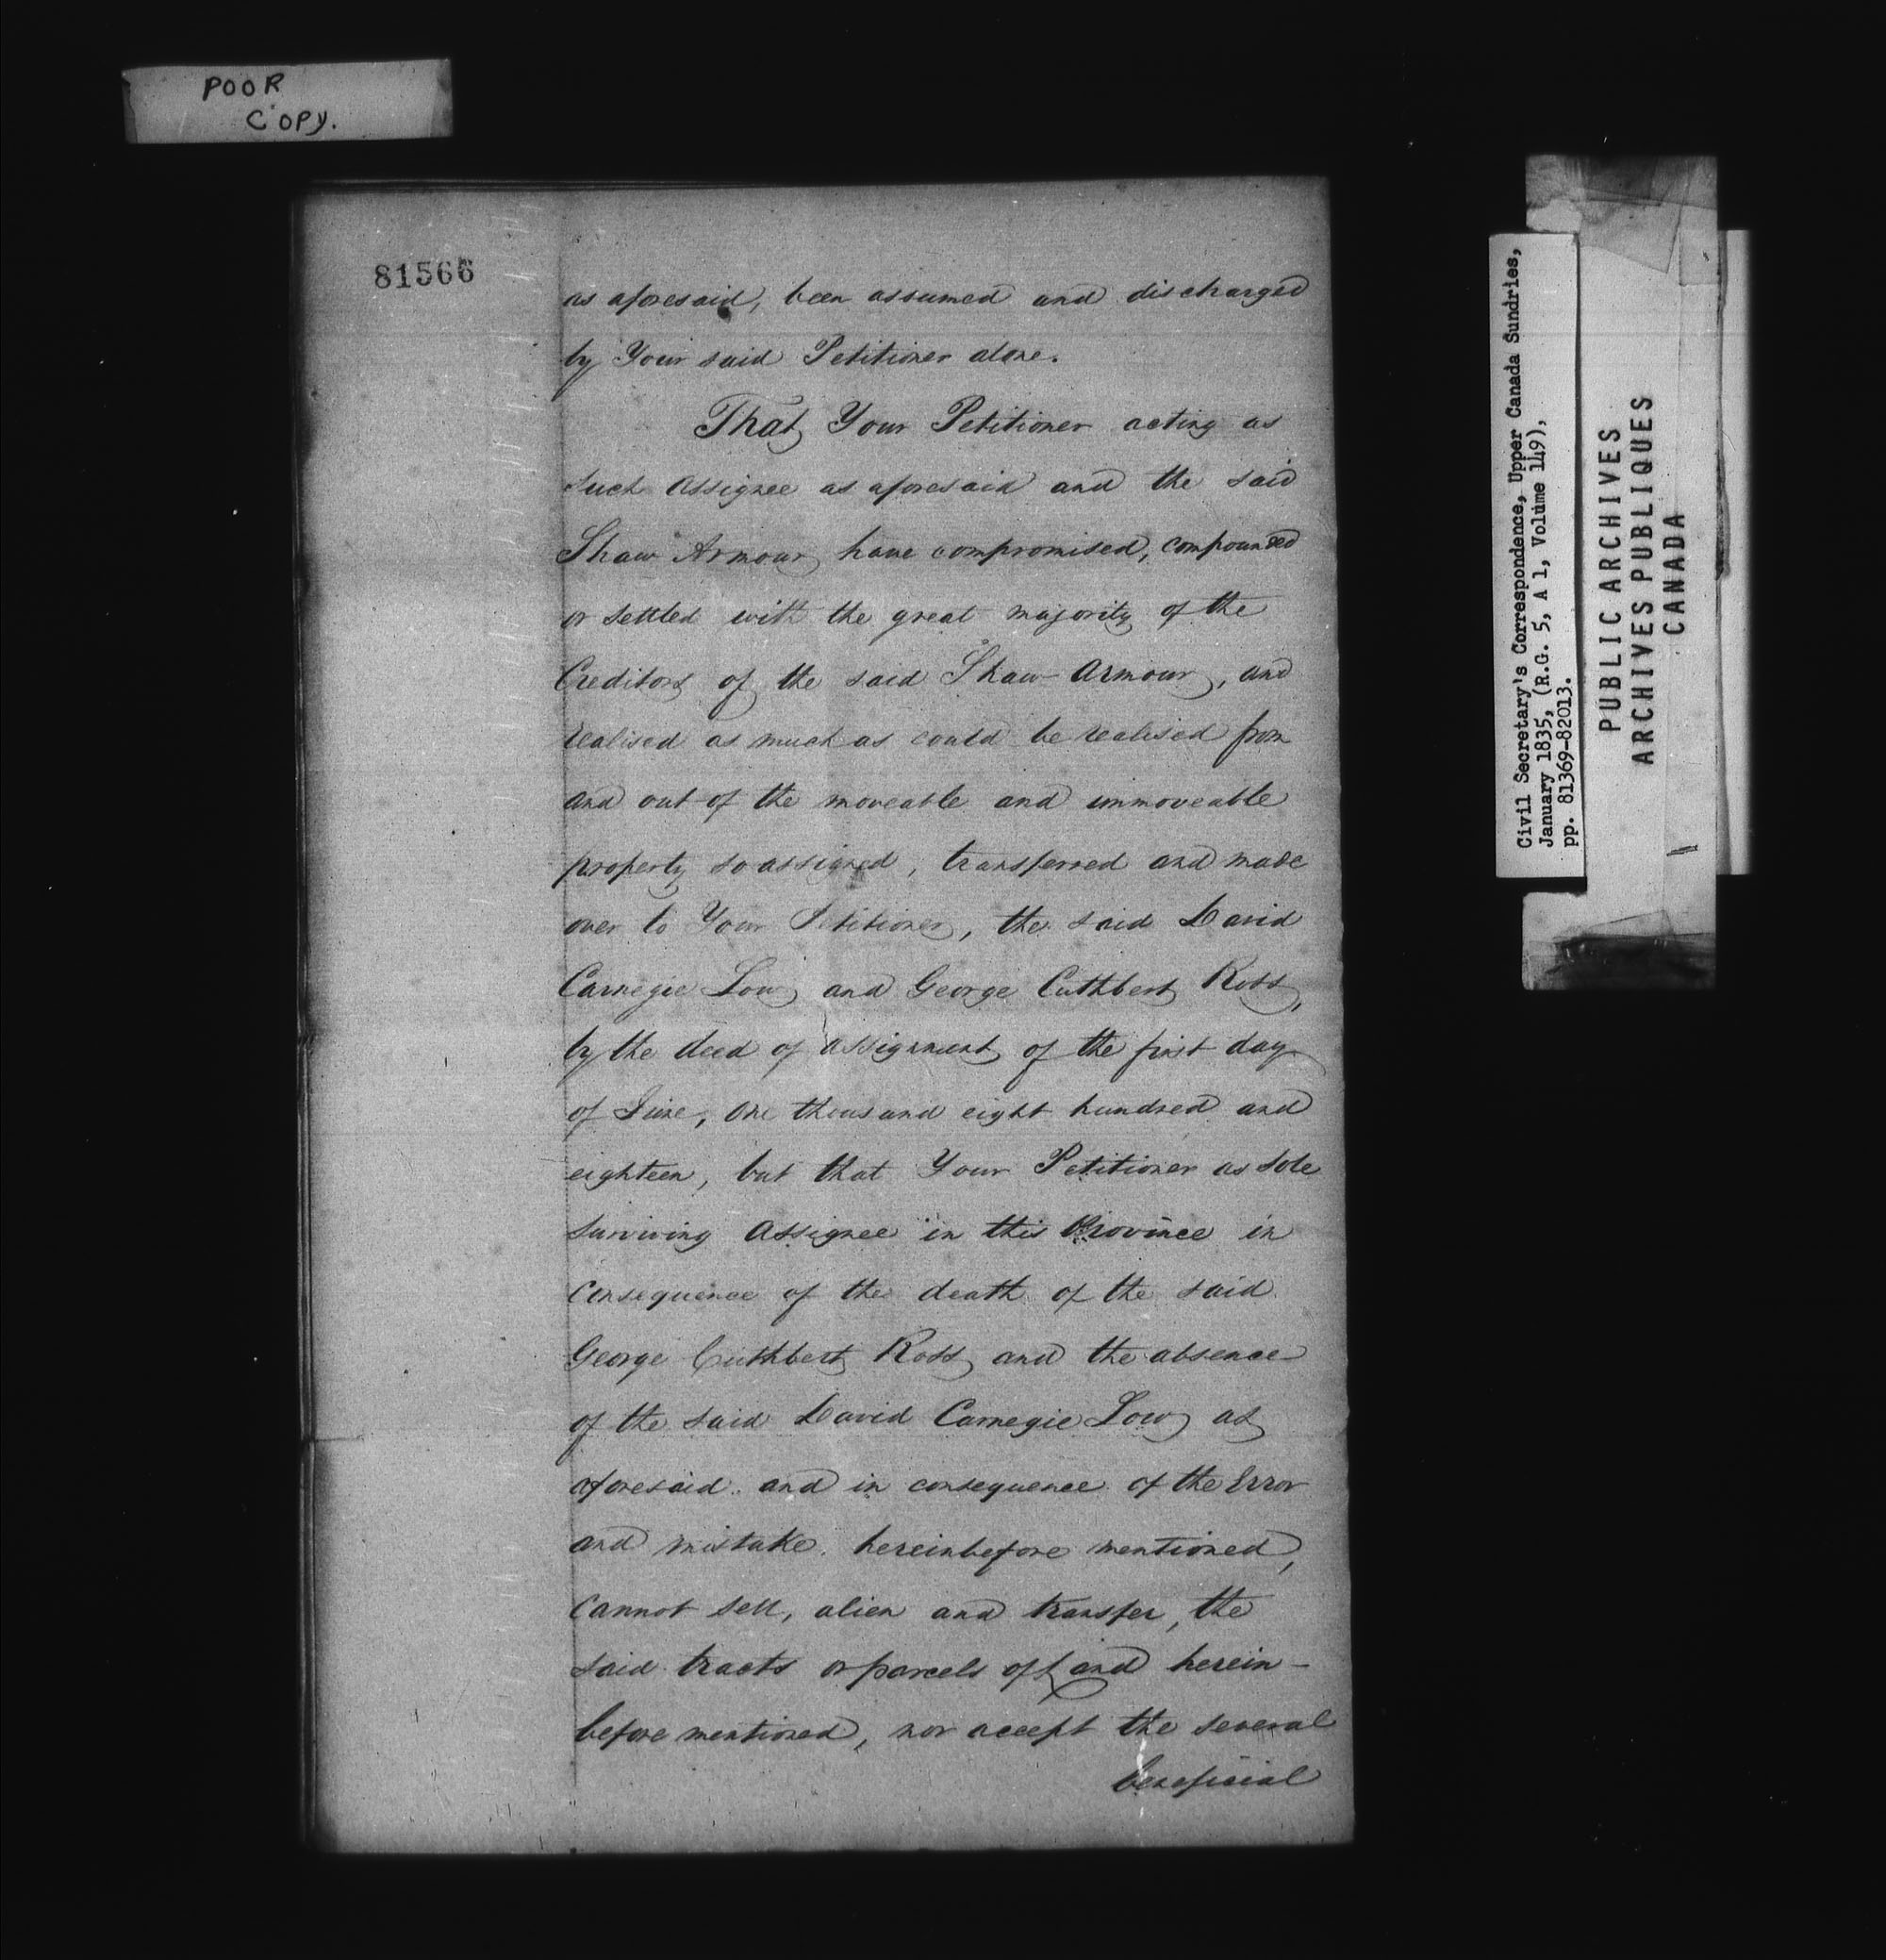 POOR
COPY.
81566
as aforesaid, been assumed and discharged
by Your said Petitioner alone.
That Your Petitioner acting as
such Assignee as aforesaid and the said
Shaw Armour have compromised, compounded
or settled with the great majority of the
Creditors of the said Shaw Armour, and
realised as much as could be realised from
and out of the moveable and immoveable
property so assigned, transferred and made
over to Your Petitioner, the said David
Carnegie Low and George Cuthbert Ross,
by the deed of assignment of the first day
of June, one thousand eight hundred and
eighteen, but that Your Petitioner as sole
surviving Assignee in this Province in
consequence of the death of the said
George Cuthbert Ross and the absence
of the said David Carnegie Low as
aforesaid and in consequence of the Error
and mistake hereinbefore mentioned,
cannot sell, alien and transfer, the
said tracts or parcels of Land herein-
before mentioned, nor accept the several
beneficial
Civil Secretary's Correspondence, Upper Canada Sundries,
January 1835, (R.G. 5, A 1, Volume 149),
pp. 81369-82013.
PUBLIC ARCHIVES
ARCHIVES PUBLIQUES
CANADA